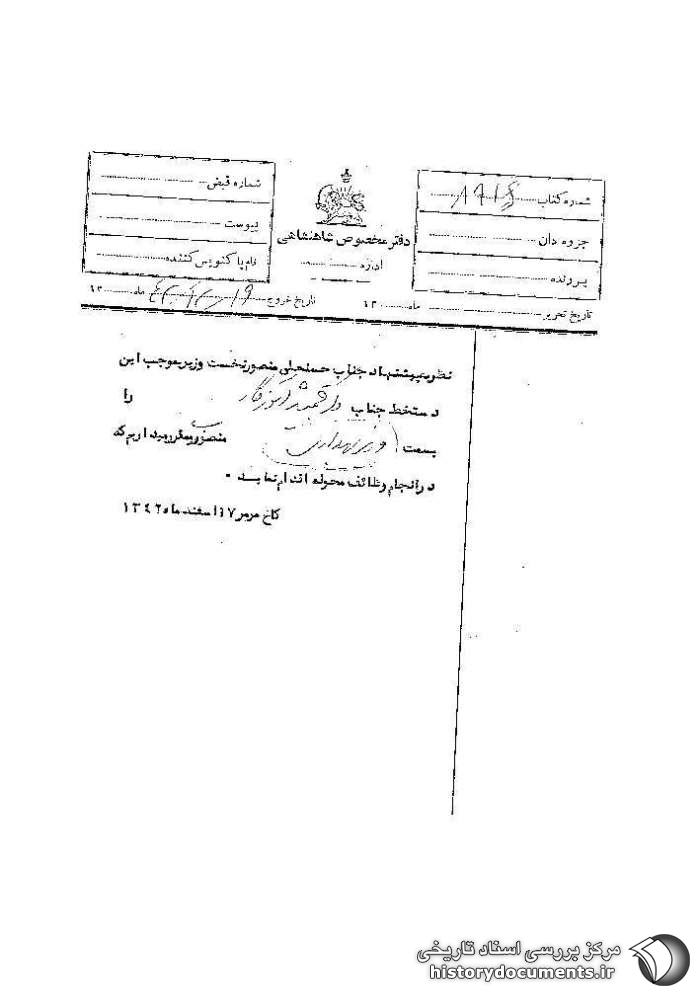 شماره کتاب
جزوه دان
پرونده
دفتر مخصوص شاهنشاهی
اداره
شماره قبض
پیوست
نام پاکنویس کننده
تاریخ تحریر ماه ۱۳
تاریخ خروج ماه ۱۳
نظر به پیشنهاد جناب حسنعلی منصور نخست وزیر بموجب این
دستخط جناب دکتر جمشید آموزگار را
بسمت وزیر بهداری منصوب و مقرر میداریم که
در انجام وظائف محوله اقدام نماید .
کاخ مرمر ۱۷ اسفند ماه ۱۳۴۲
مرکز بررسی اسناد تاریخی
historydocuments.ir